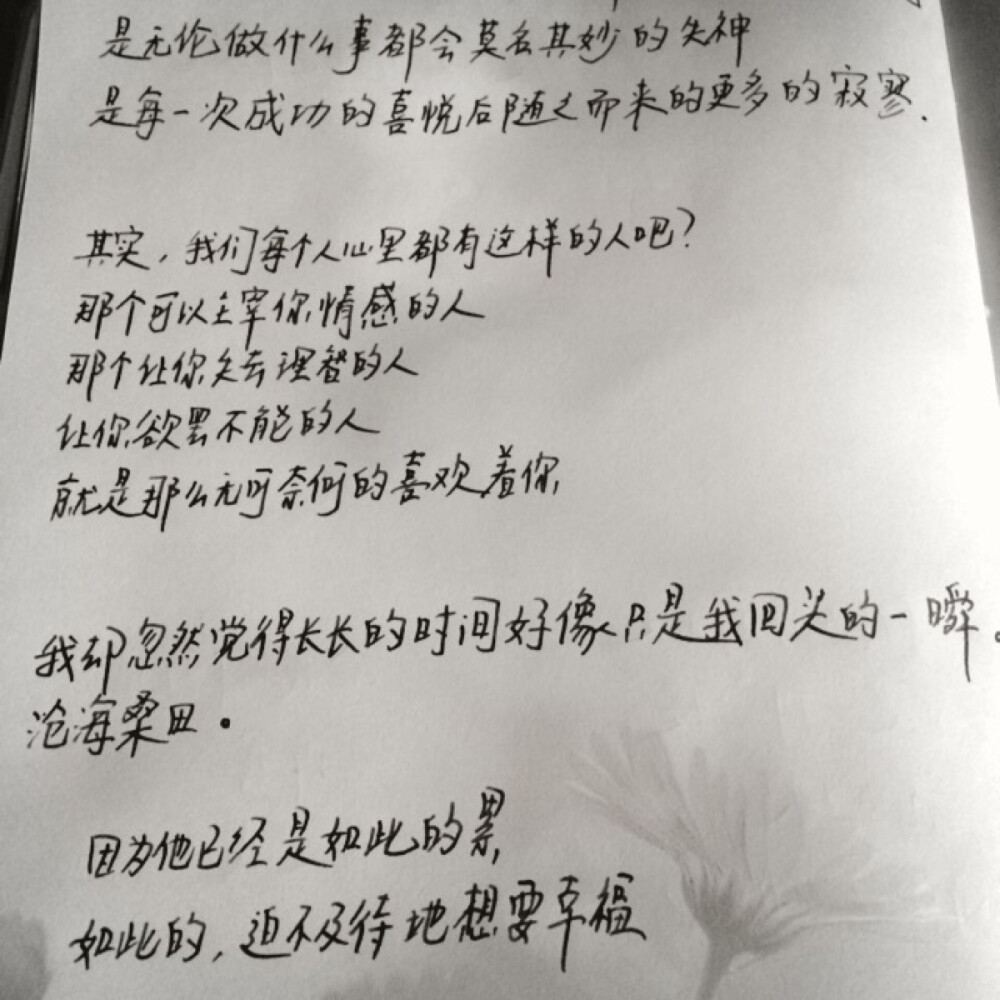 是无论做什么事都会莫名其妙的失神
是每一次成功的喜悦后随之而来的更多的寂寥.
其实,我们每个人心里都有这样的人吧?
那个可以主宰你情感的人
那个让你失去理智的人
让你欲罢不能的人
就是那么无可奈何的喜欢着你
我却忽然觉得长长的时间好像只是我回头的一瞬。
沧海桑田。
因为他已经是如此的累,
如此的,迫不及待地想要幸福